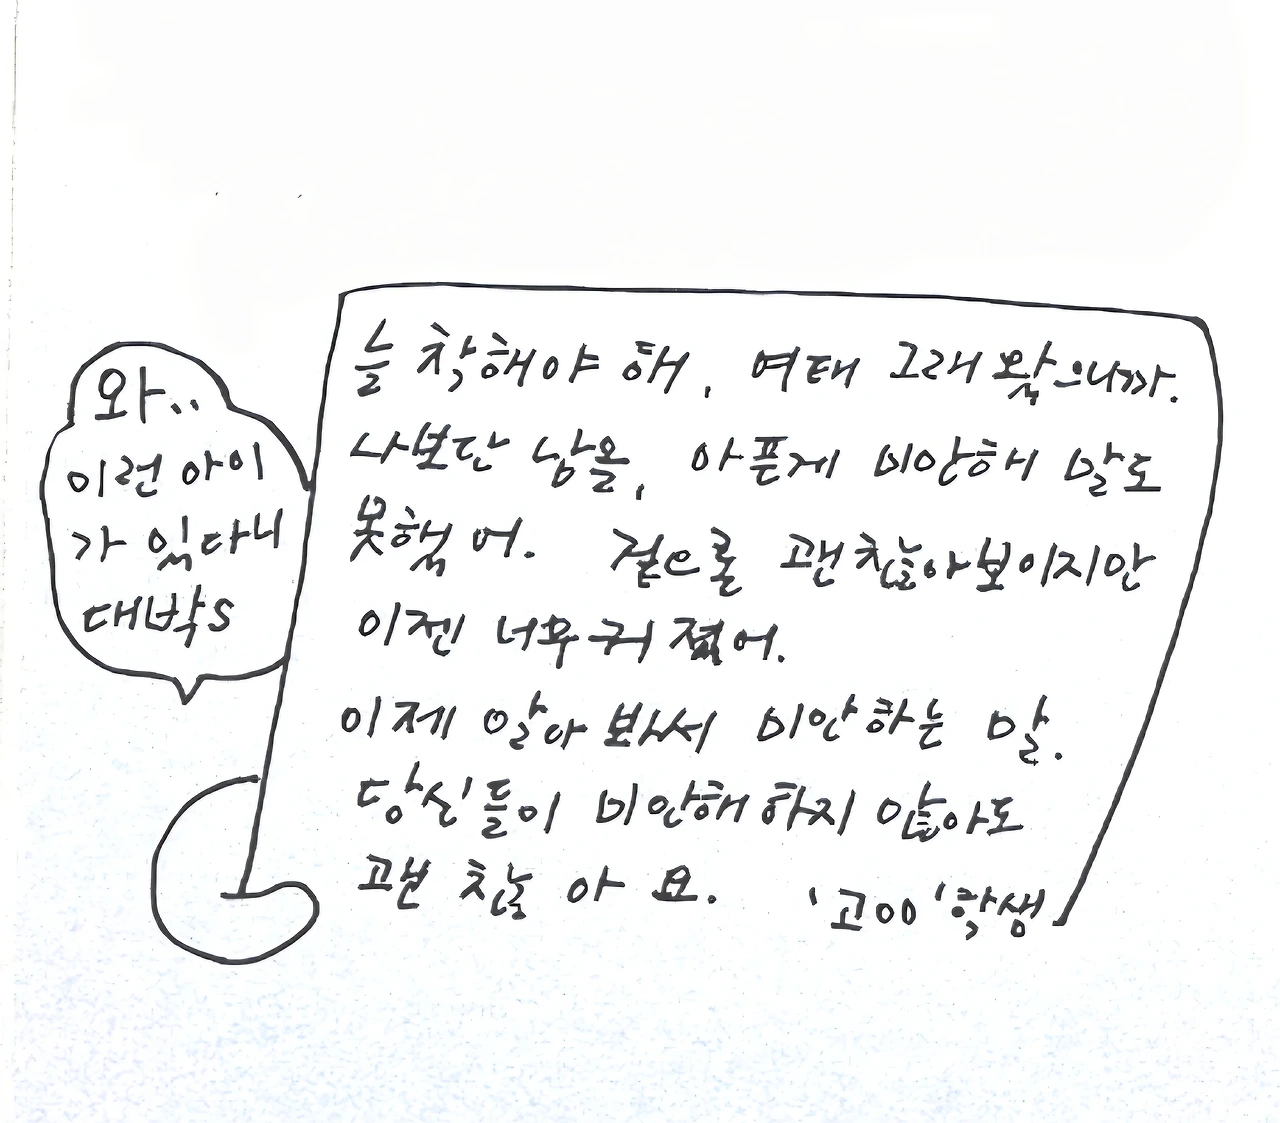 와..
이런 아이
가 있다니
대박s
늘 착해야 해, 여태 그래 왔으니까.
나보단 남을, 아픈게 미안해 말도
못했어. 겉으론 괜찮아보이지만
이젠 너무 커졌어.
이제 알아 봐서 미안하는 말.
당신들이 미안해 하지 않아도
괜찮아요. '고00'학생